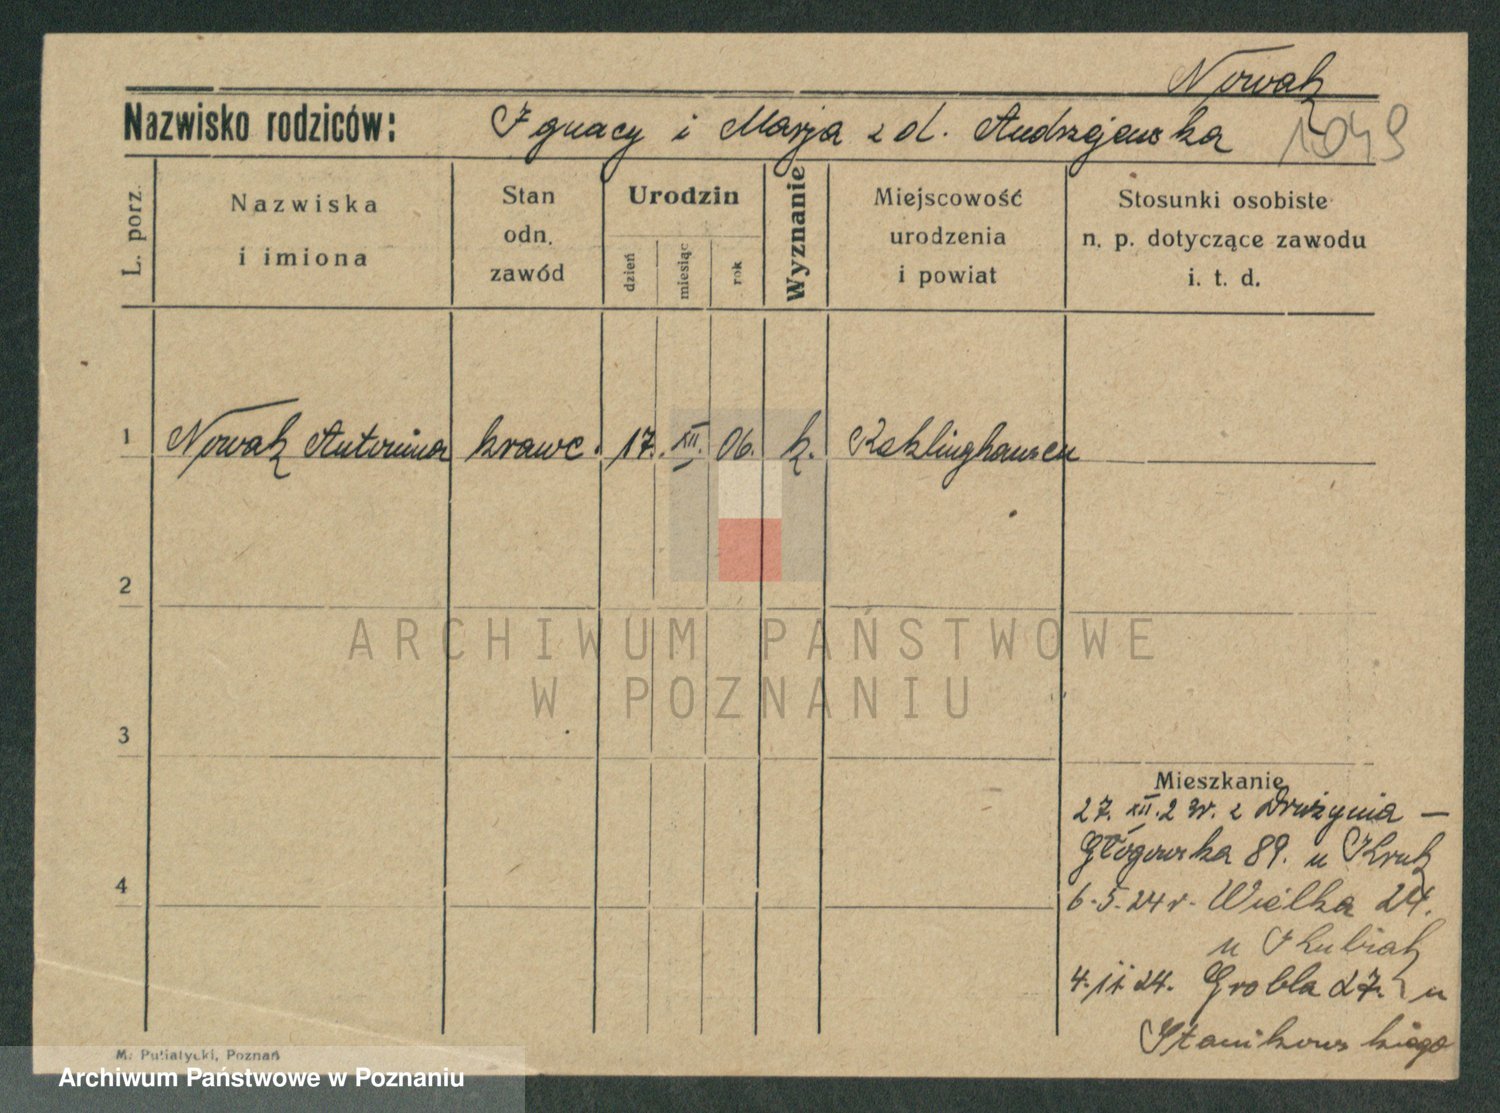 Nowak
Nazwisko rodziców: Ignacy i Marja z d. Andrzejewska 1049
L. porz.
Nazwiska
i imiona
Stan
odn.
zawód
Urodzin
dzień
miesiąc
rok
Wyznanie
Miejscowość
urodzenia
i powiat
Stosunki osobiste
n. p. dotyczące zawodu
i. t. d.
1 Nowak Antonina krawc. 17. XII. 06. k. Reklinghausen
2
ARCHIWUM PAŃSTWOWE
W POZNANIU
3
Mieszkanie
27. XII. 23r. z Drużynia —
Głogowska 89. u Kruk
4
6.5.24 r. Wielka 24.
u Kubiak
4.11.24. Grobla 27. u
Stanikowskiego
M. Putiatycki, Poznań
Archiwum Państwowe w Poznaniu